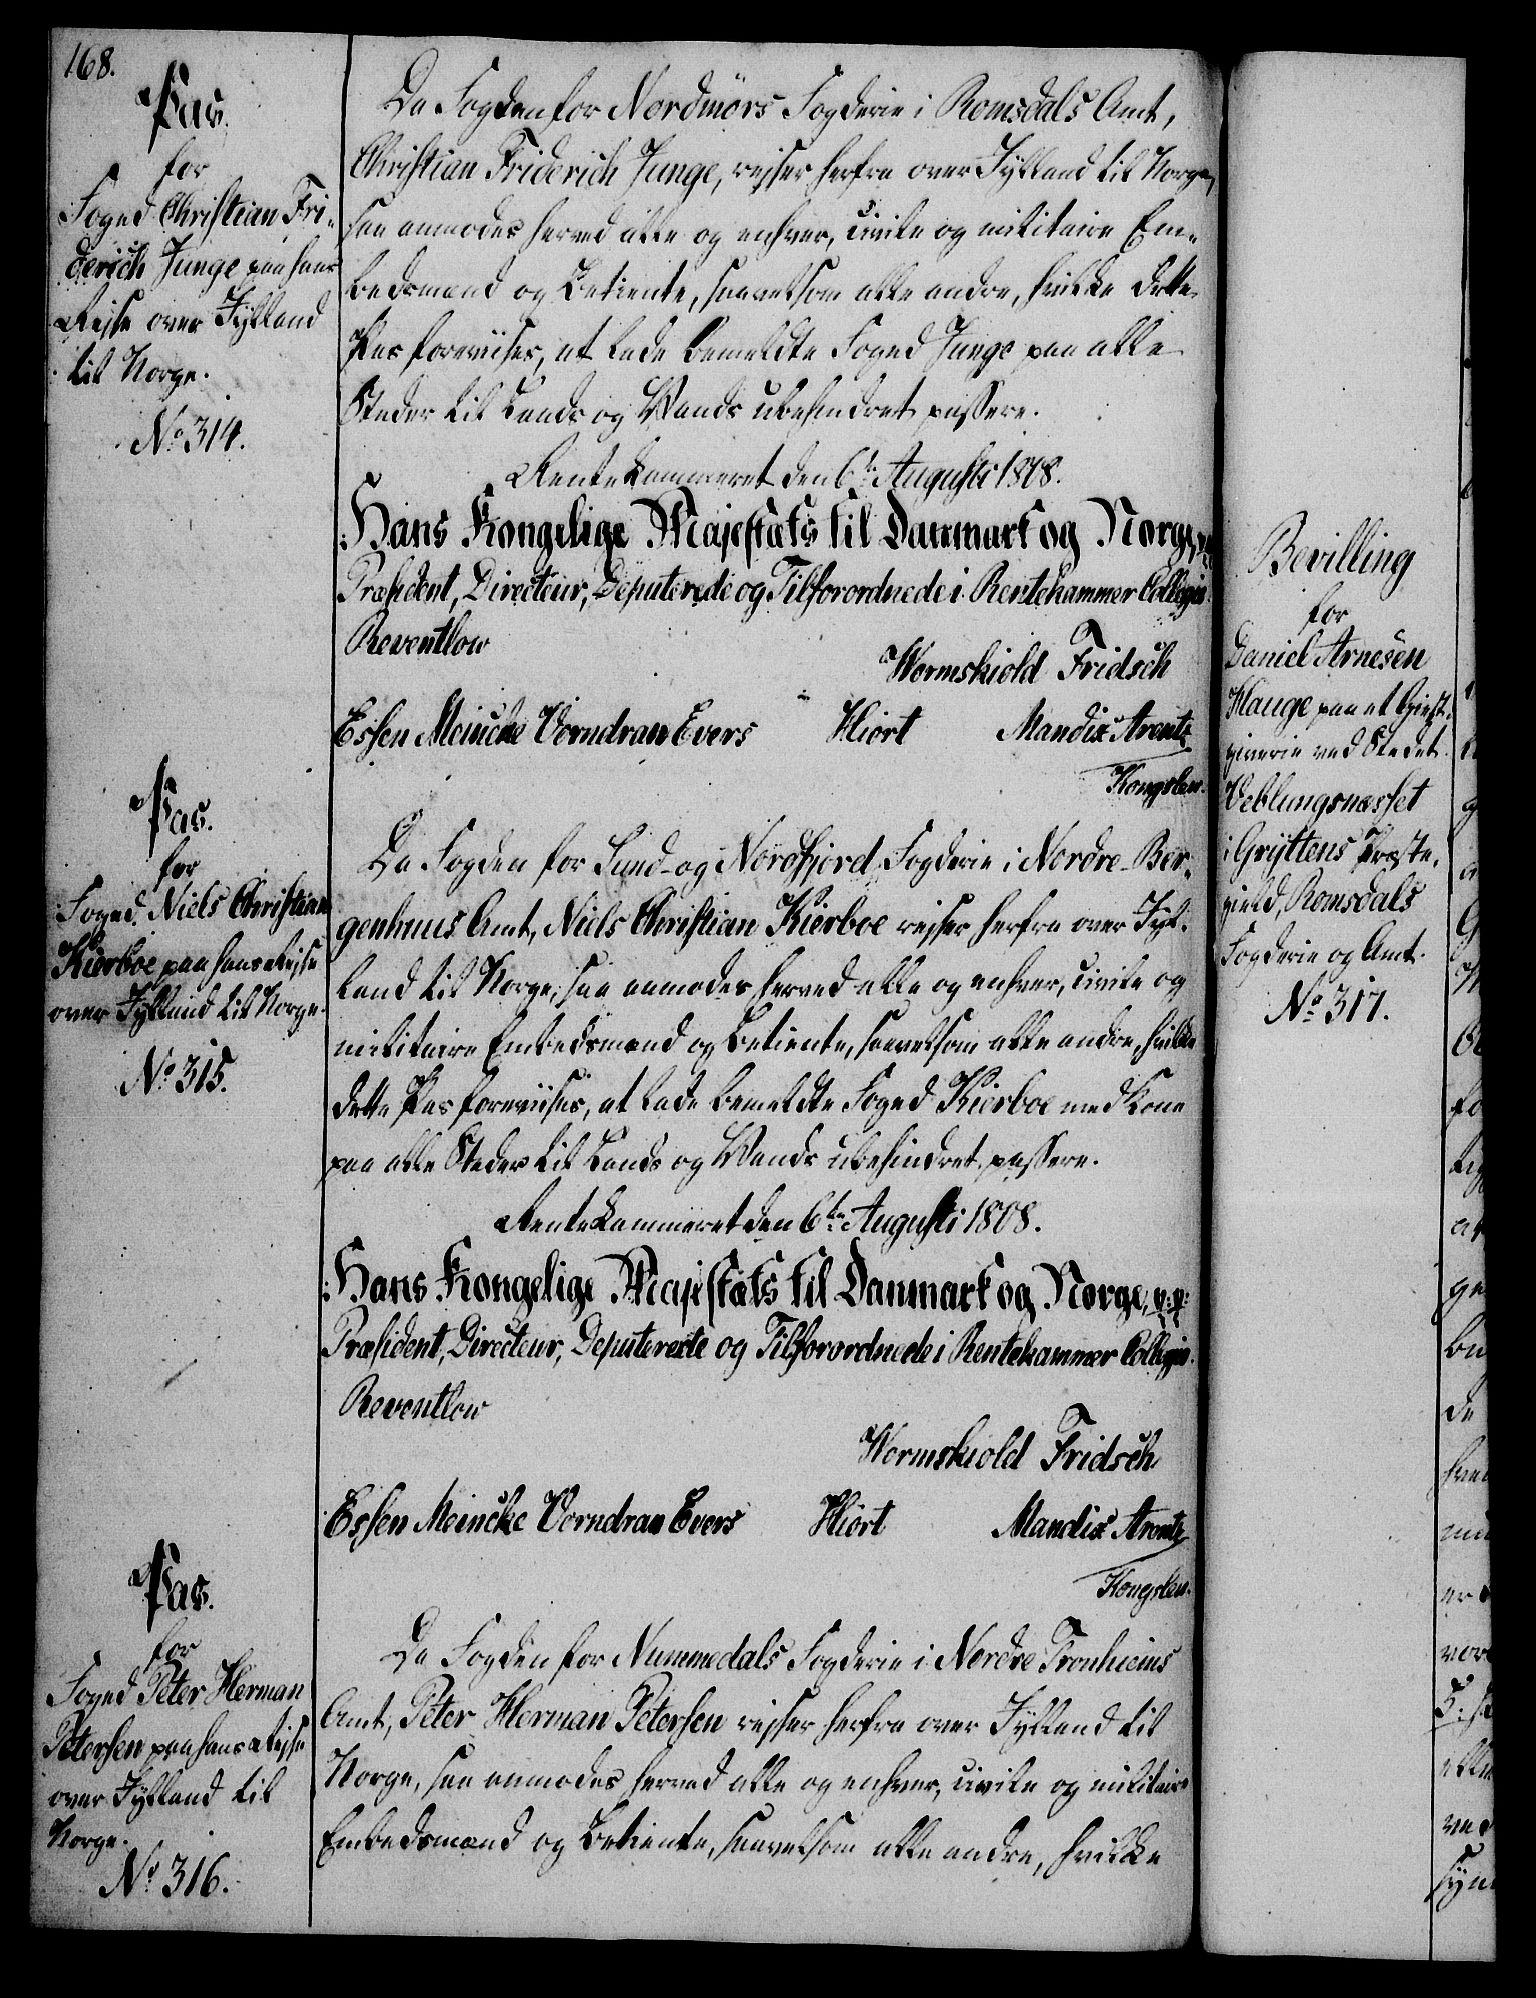 168.
Pas
for
Foged Christian Fri-
derich Junge paa hans
Rejse over Jylland
til Norge.
No. 314.
Da Fogden for Nordmörs Fogderie i Romsdals Amt,
Christian Friderich Junge, rejser herfra over Jylland til Norge,
saa anmodes herved alle og enhver, civile og militaire Em-
bedsmænd og Betiente, saavelsom alle andre, hvilke dette
Pas foreviises, at lade bemeldte Foged Junge paa alle
Steder til Lands og Vands ubehindret passere.
Rentekammeret den 6te Augusti 1808.
Hans Kongelige Majestæts til Danmark og Norge, p:p:
Præsident, Directeur, Deputerede og Tilforordnede i Rentekammer Collegio.
Reventlow
Wormskiold Fridsch
Essen Meincke Vorndran Evers Hiort Mandix Arentz
Kongslew.
Pas.
for
Foged Niels Christian
Kierboe paa hans Rejse
over Jylland til Norge.
No. 315.
Da Fogden for Sund- og Nordfjord Fogderie i Nordre-Ber-
genhuus Amt, Niels Christian Kierboe rejser herfra over Jyl-
land til Norge, saa anmodes herved alle og enhver, civile og
militaire Embedsmænd og Betiente, saavelsom alle andre, hvilke
dette Pas foreviises, at lade bemeldte Foged Kierboe med Kone
paa alle Steder til Lands og Vands ubehindret passere.
Rentekammeret den 6te Augusti 1808.
Hans Kongelige Majestæts til Danmark og Norge, p:p:
Præsident, Directeur, Deputerede og Tilforordnede i Rentekammer Collegio.
Reventlow
Wormskiold Fridsch
Essen Meincke Vorndran Evers Hiort Mandix Arentz
Kongslew.
Pas.
for
Foged Peter Herman
Petersen paa hans Rejse
over Jylland til
Norge.
No. 316.
Da Fogden for Nummedals Fogderie i Nordre Tronhiems
Amt, Peter Herman Petersen rejser herfra over Jylland til
Norge, saa anmodes herved alle og enhver, civile og militaire
Embedsmænd og Betiente, saavelsom alle andre, hvilke
Bevilling
for
Daniel Arnesen
Hauge paa et Giest-
giverie ved Stedet
Veblungsnæsset
i Gryttens Præste-
gield, Romsdals
Fogderie og Amt.
No. 317.